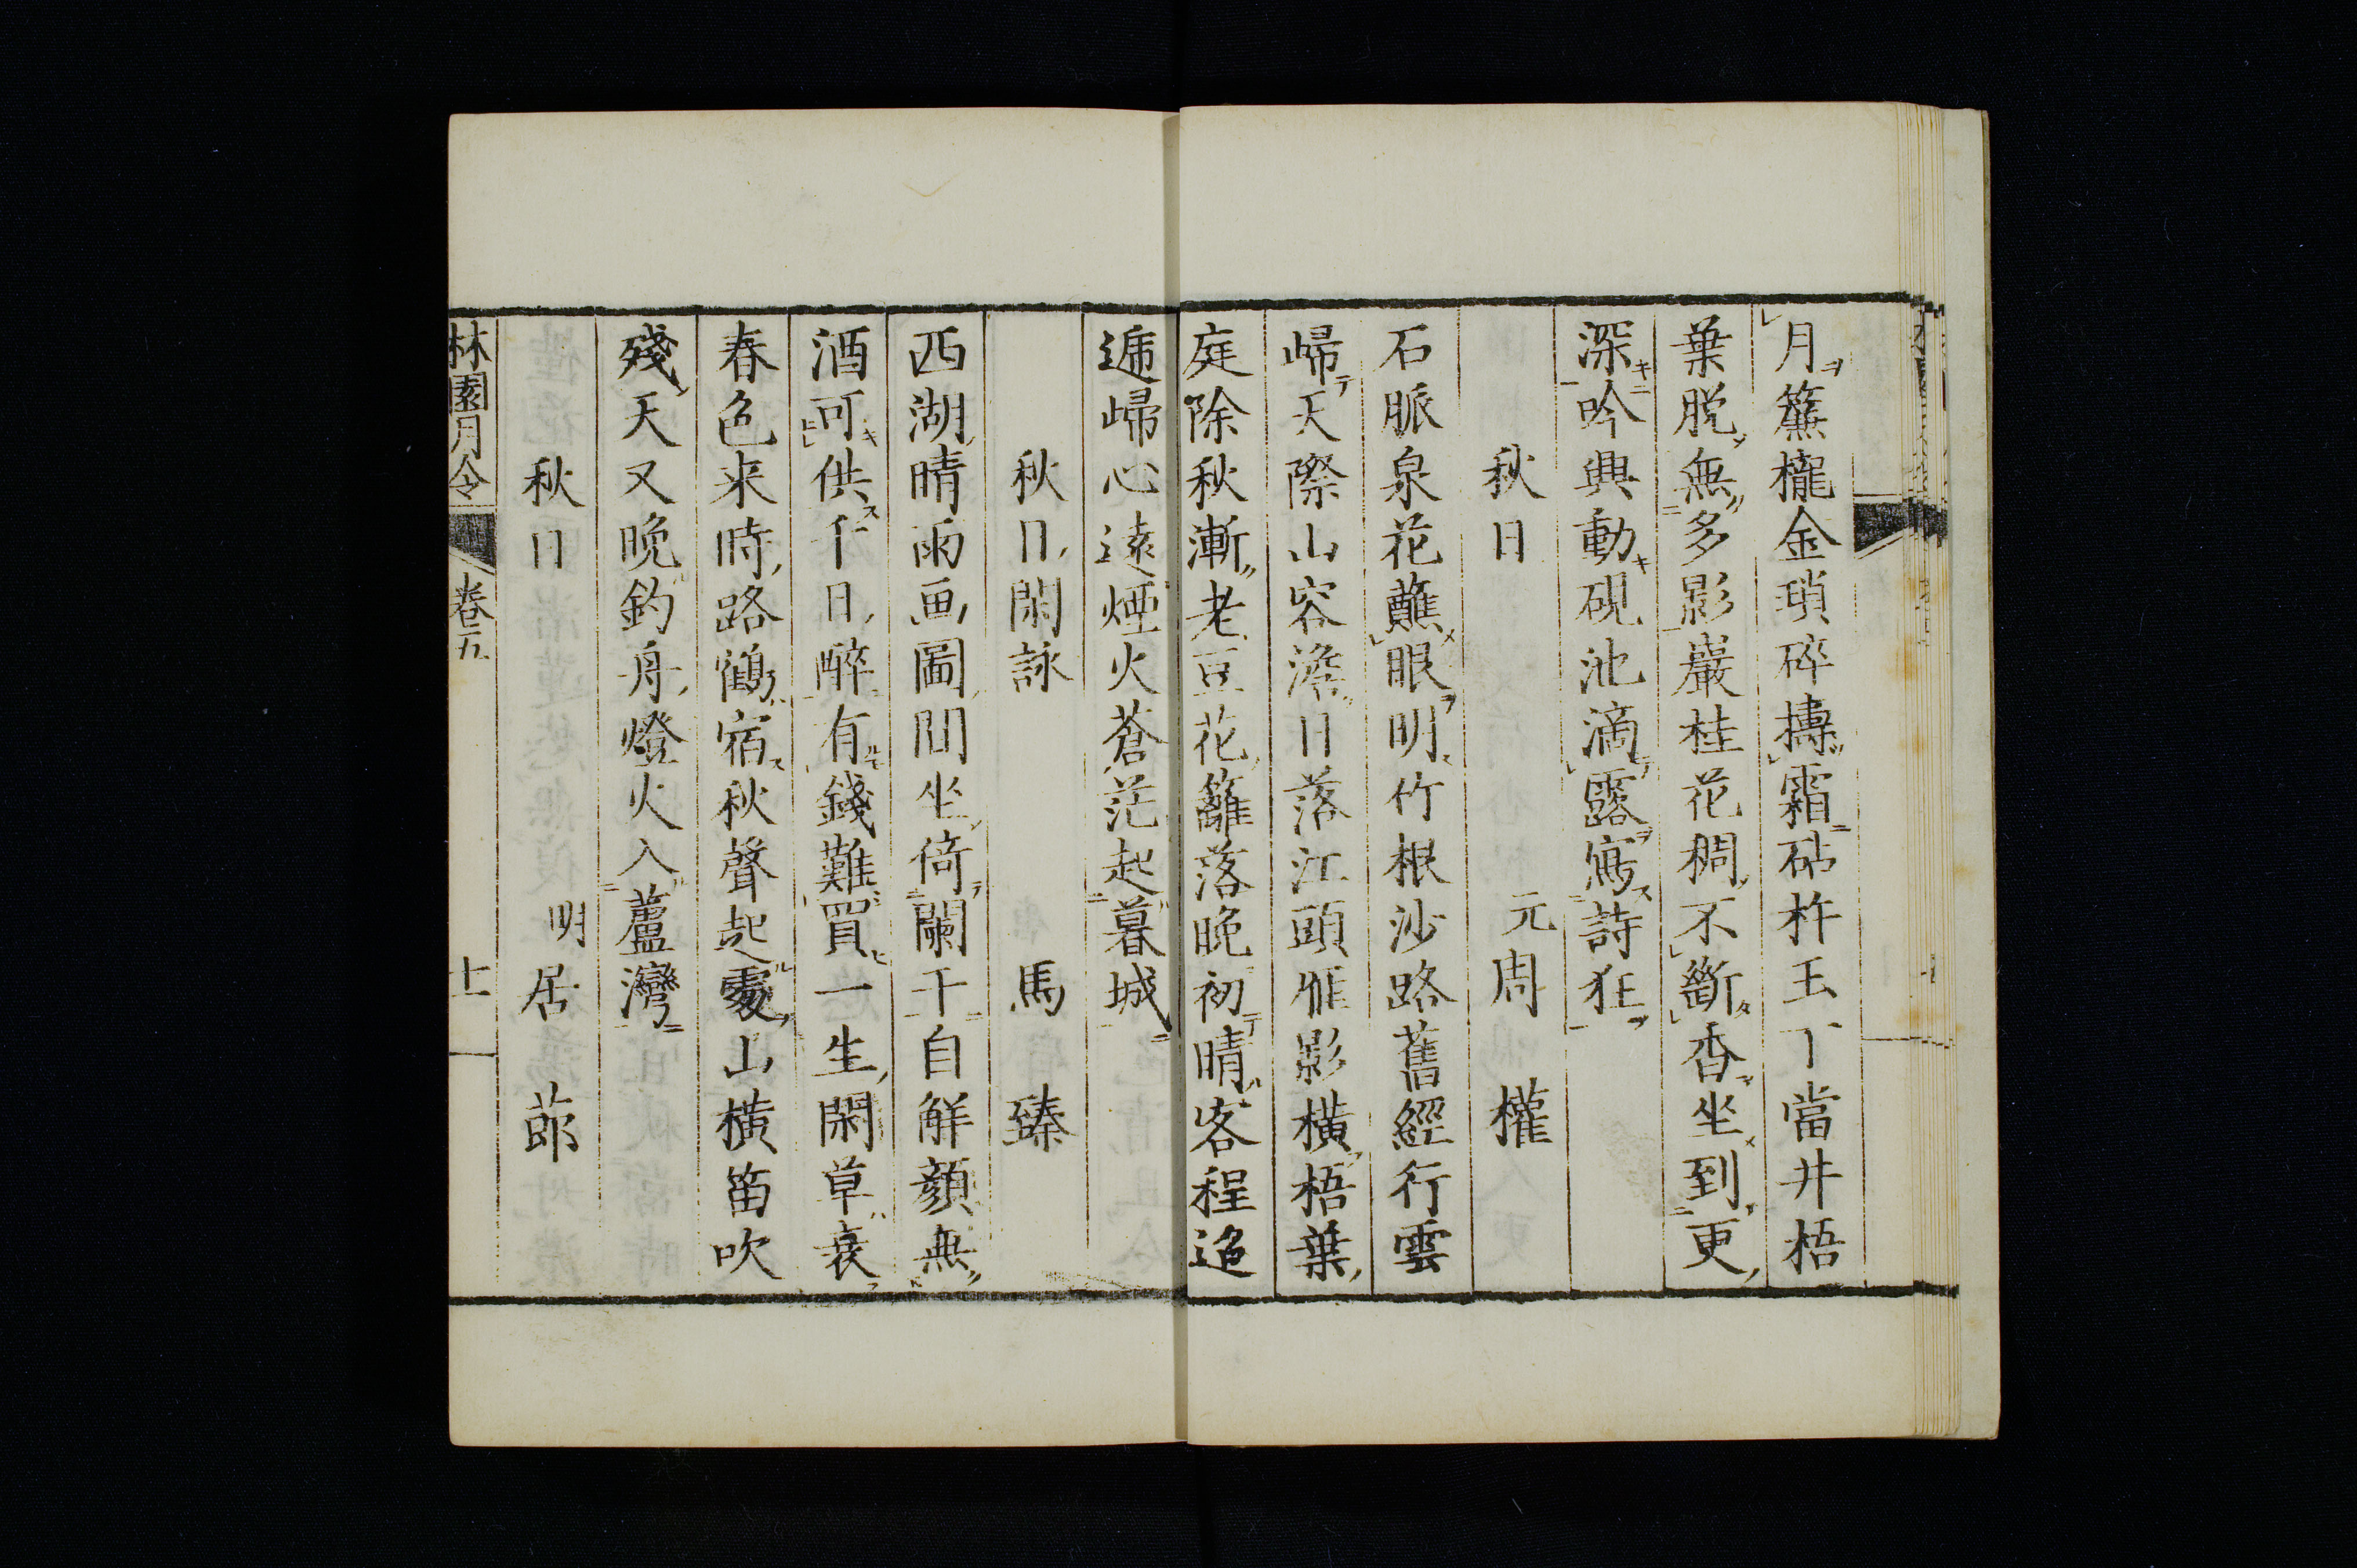 月簾櫳金瑣碎擣霜砧杵玉丁當井梧
葉脱無多影巖桂花稠不斷香坐到更
深吟興動硯池滴露寫詩狂
秋日 元周 權
石脈泉花蘸眼明竹根沙路舊經行雲
歸天際山容澹日落江頭雁影橫梧葉
庭除秋漸老豆花籬落晚初晴客程迢
遞歸心遠煙火蒼茫起暮城
秋日閑詠 馬 臻
西湖晴雨画圖間坐倚闌干自解顏無
酒可供千日醉有錢難買一生閑草衰
春色来時路鶴宿秋聲起處山橫笛吹
殘天又晚釣舟燈火入蘆灣
秋日 明居 節
林園月令 卷五 十一